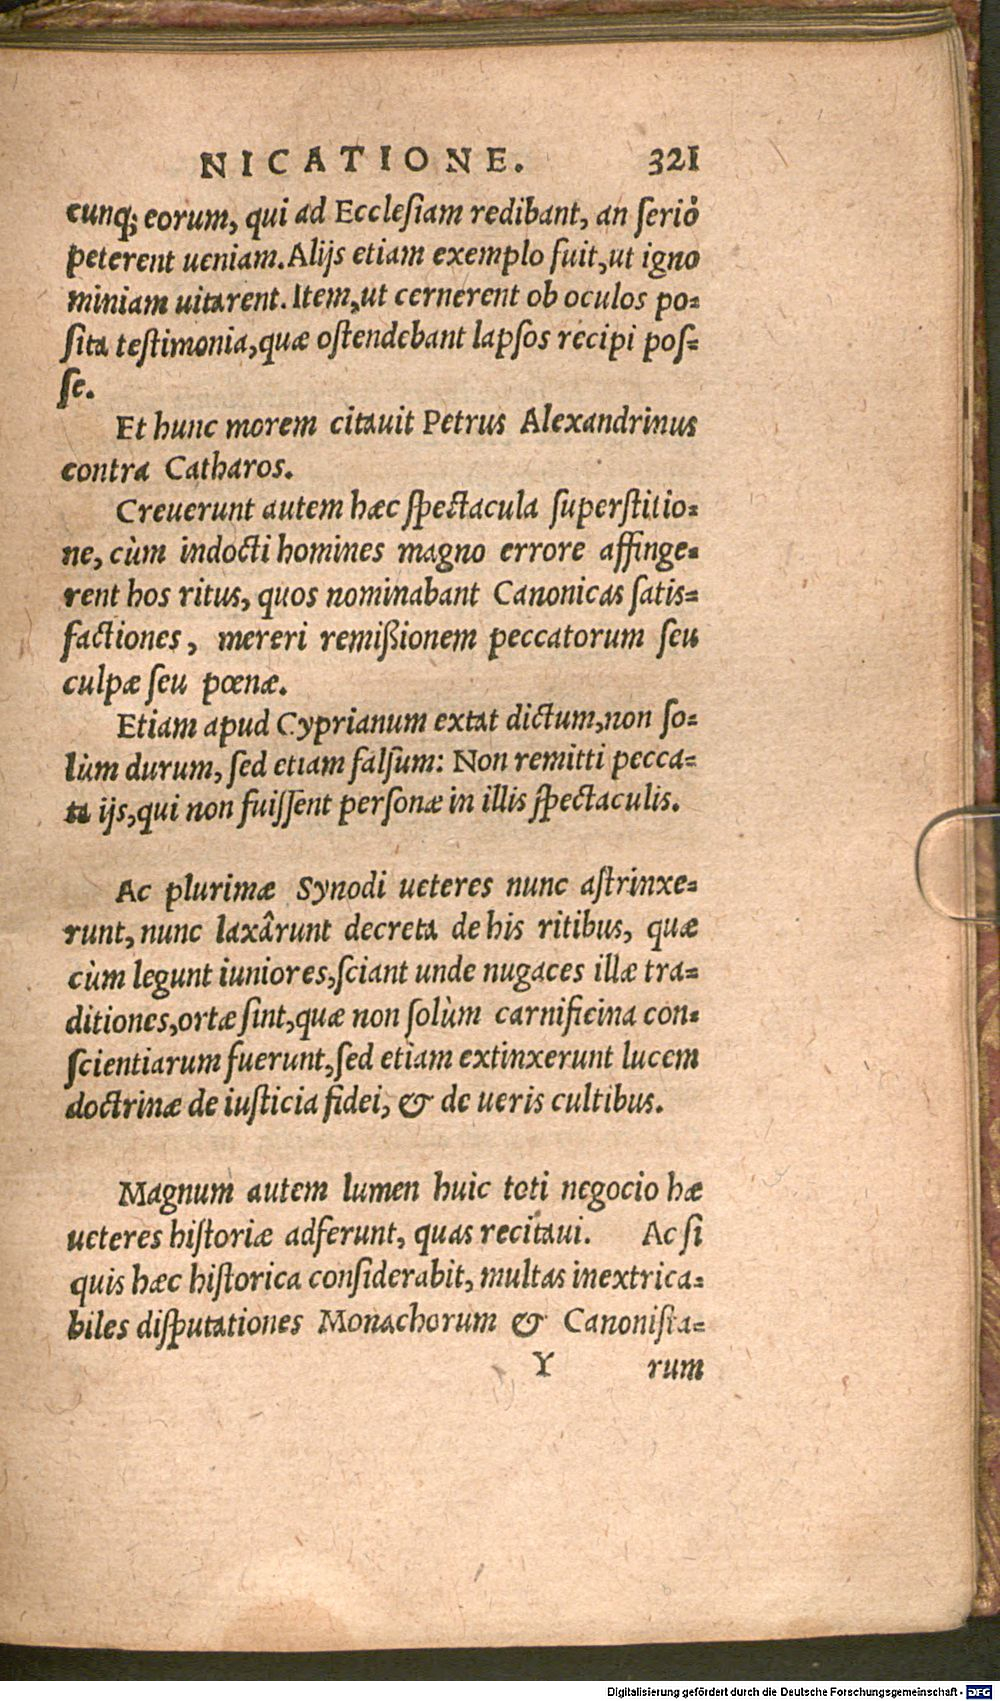 NICATIONE. 321
cunq; eorum, qui ad Ecclesiam redibant, an seriò
peterent ueniam. Alijs etiam exemplo fuit, ut igno
miniam uitarent. Item, ut cernerent ob oculos po=
sita testimonia, quæ ostendebant lapsos recipi pos=
se.
Et hunc morem citauit Petrus Alexandrinus
contra Catharos.
Creuerunt autem hæc spectacula superstitio=
ne, cùm indocti homines magno errore affinge=
rent hos ritus, quos nominabant Canonicas satis=
factiones, mereri remißionem peccatorum seu
culpæ seu pœnæ.
Etiam apud Cyprianum extat dictum, non so=
lùm durum, sed etiam falsum: Non remitti pecca=
ta ijs, qui non fuissent personæ in illis spectaculis.
Ac plurimæ Synodi ueteres nunc astrinxe=
runt, nunc laxârunt decreta de his ritibus, quæ
cùm legunt iuniores, sciant unde nugaces illæ tra=
ditiones, ortæ sint, quæ non solùm carnificina con=
scientiarum fuerunt, sed etiam extinxerunt lucem
doctrinæ de iusticia fidei, & de ueris cultibus.
Magnum autem lumen huic toti negocio hæ
ueteres historiæ adferunt, quas recitaui. Ac si
quis hæc historica considerabit, multas inextrica=
biles disputationes Monachorum & Canonista=
Y rum
Digitalisierung gefördert durch die Deutsche Forschungsgemeinschaft - DFG